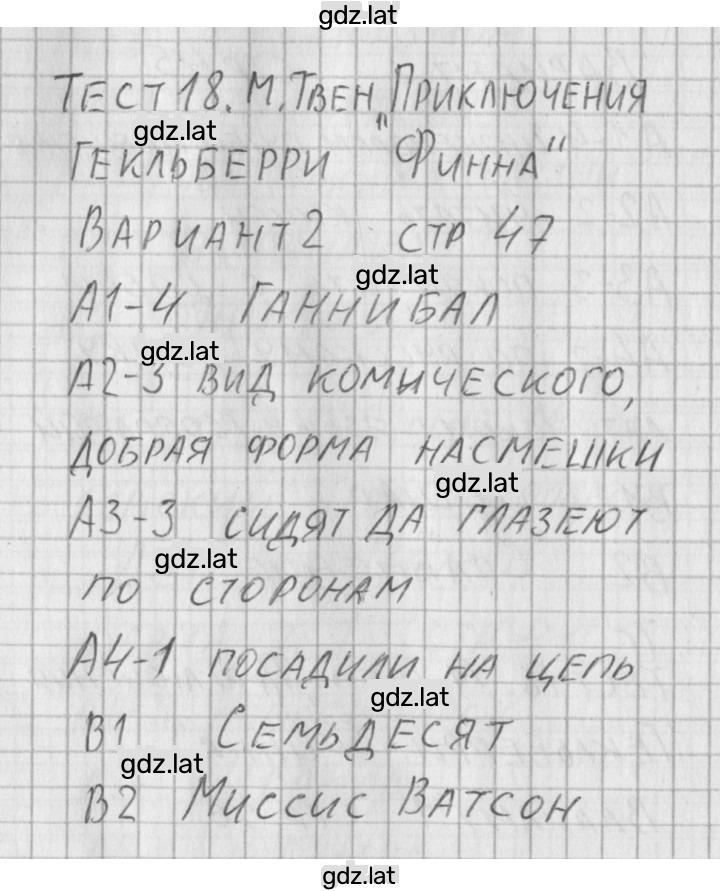 gdz.lat
ТЕСТ 18. М. ТВЕН "ПРИКЛЮЧЕНИЯ
gdz.lat
ГЕКЛЬБЕРРИ ФИННА"
ВАРИАНТ 2 СТР 47
gdz.lat
А1-4 ГАННИБАЛ
gdz.lat
А2-3 ВИД КОМИЧЕСКОГО,
ДОБРАЯ ФОРМА НАСМЕШКИ
gdz.lat
А3-3 СИДЯТ ДА ГЛАЗЕЮТ
gdz.lat
ПО СТОРОНАМ
А4-1 ПОСАДИЛИ НА ЦЕПЬ
gdz.lat
В1 СЕМЬДЕСЯТ
gdz.lat
В2 МИССИС ВАТСОН
gdz.lat